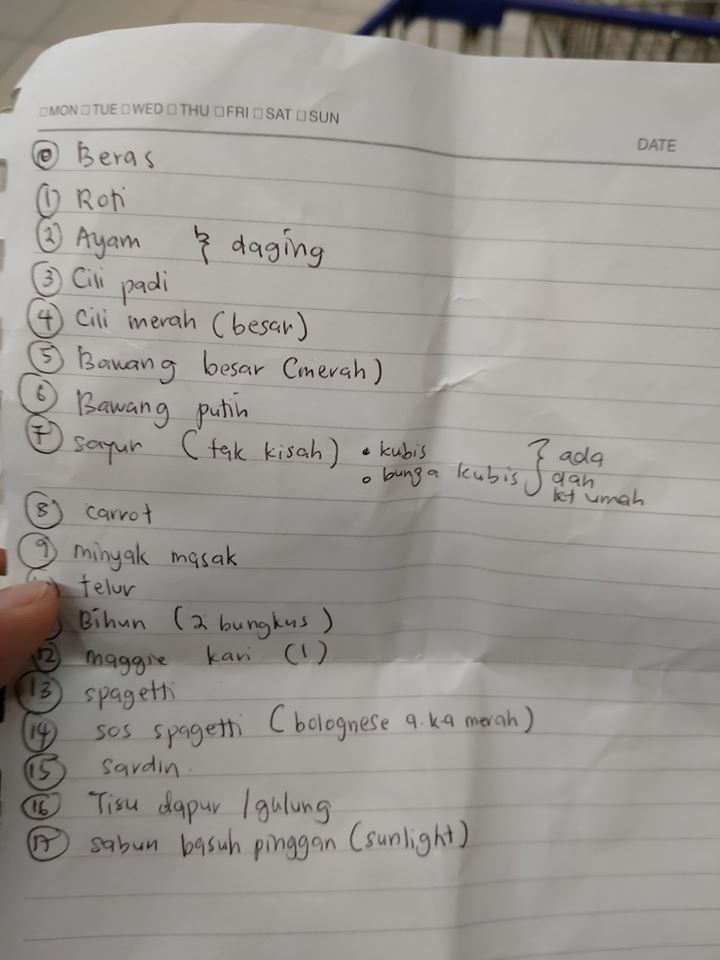 □MON □TUE □WED □THU □FRI □SAT □SUN
DATE
0 Beras
1 Roti
2 Ayam & daging
3 Cili padi
4 Cili merah (besar)
5 Bawang besar (merah)
6 Bawang putih
7 sayur (tak kisah) • kubis
• bunga kubis } ada dah kt umah
8 carrot
9 minyak masak
telur
Bihun (2 bungkus)
12 maggie kari (1)
13 spagetti
14 sos spagetti (bolognese a.k.a merah)
15 sardin.
16 Tisu dapur /gulung
17 sabun basuh pinggan (sunlight)